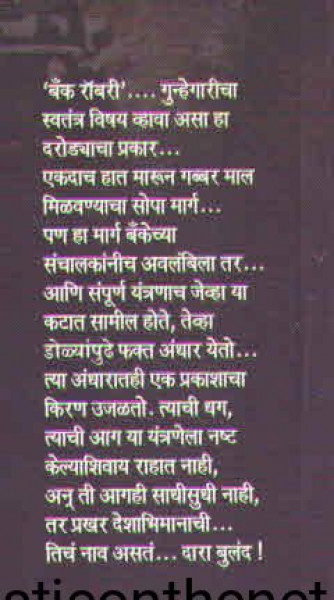 'बँक रॉबरी'.... गुन्हेगारीचा
स्वतंत्र विषय व्हावा असा हा
दरोड्याचा प्रकार...
एकदाच हात मारून गब्बर माल
मिळवण्याचा सोपा मार्ग...
पण हा मार्ग बँकेच्या
संचालकांनीच अवलंबिला तर...
आणि संपूर्ण यंत्रणाच जेव्हा या
कटात सामील होते, तेव्हा
डोळ्यांपुढे फक्त अंधार येतो...
त्या अंधारातही एक प्रकाशाचा
किरण उजळतो. त्याची धग,
त्याची आग या यंत्रणेला नष्ट
केल्याशिवाय राहात नाही,
अन् ती आगही साधीसुधी नाही,
तर प्रखर देशाभिमानाची...
तिचं नाव असतं... दारा बुलंद !